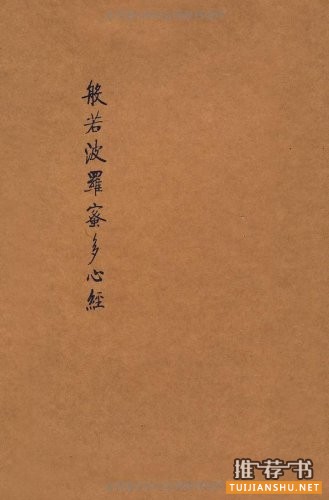 般若波羅蜜多心經
推荐书
TUIJIANSHU.NET